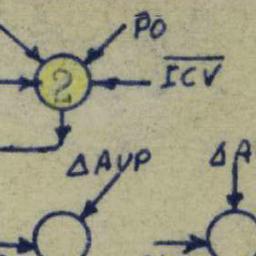 PO
2
ICV
ΔAVP
ΔA